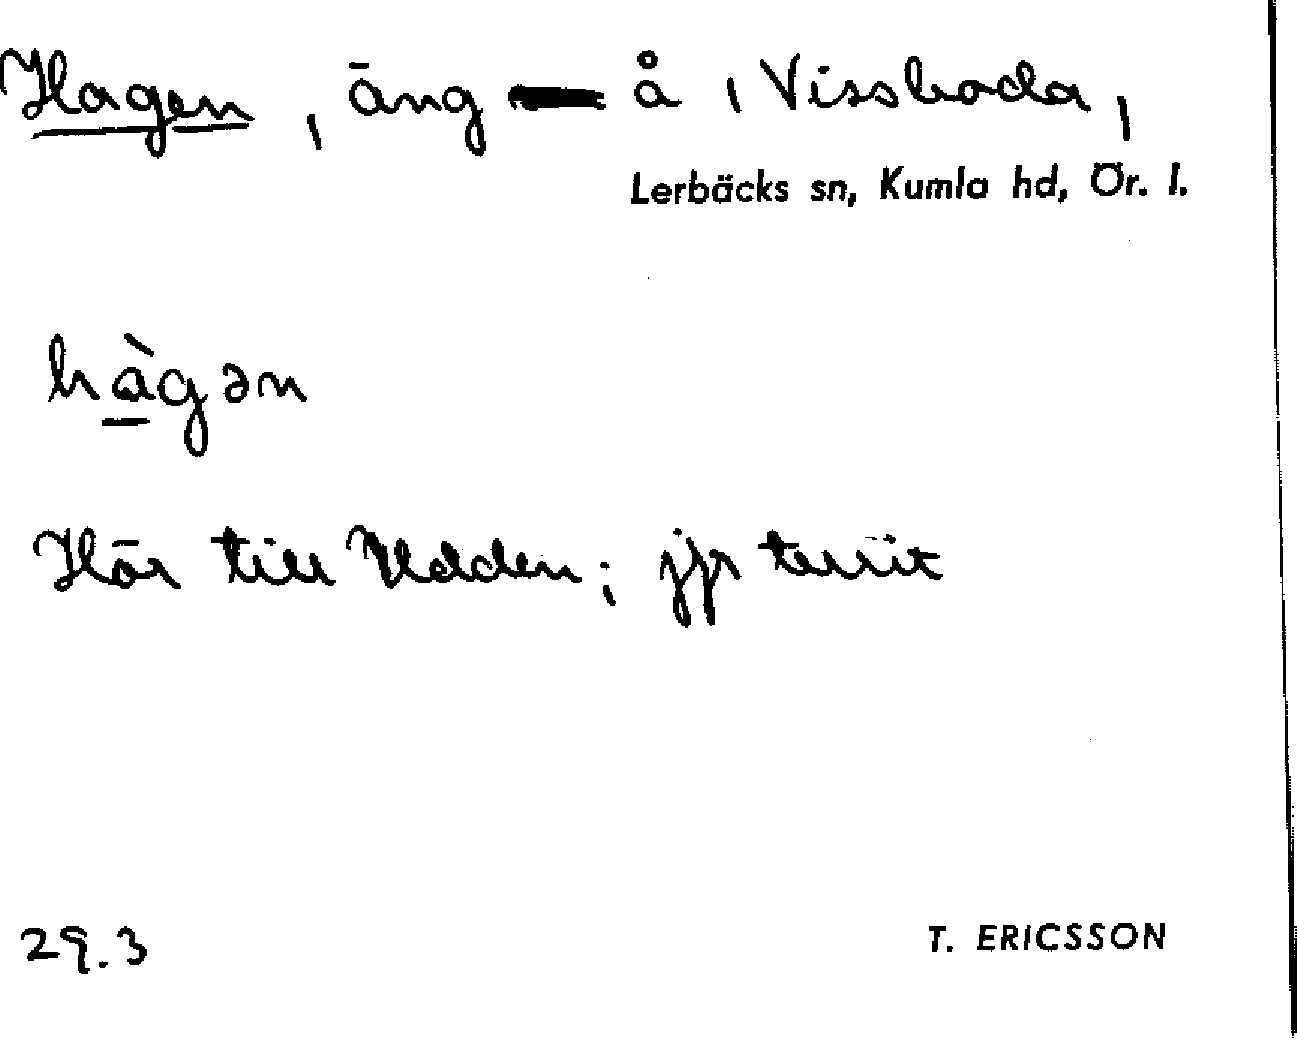 Hagen, äng å, Vissboda,
Lerbäcks sn, Kumla hd, Ör. l.
hàgən
Hör till Udden; jfr
29.3
T. ERICSSON